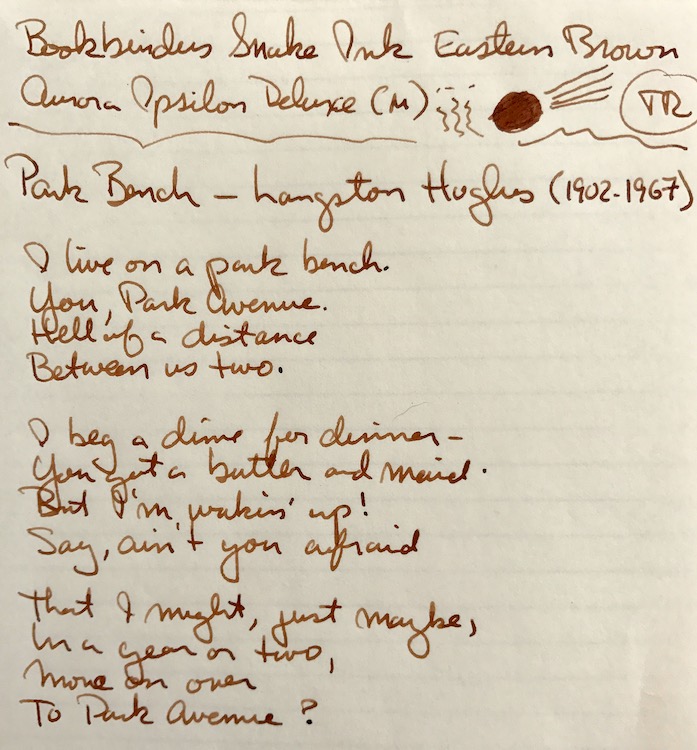 Bookbinders Snake Ink Eastern Brown
Aurora Ipsilon Deluxe (M)
TR
Park Bench – Langston Hughes (1902-1967)
I live on a park bench.
You, Park Avenue.
Hell of a distance
Between us two.
I beg a dime for dinner–
You got a butler and maid.
But I'm wakin' up!
Say, ain't you afraid
That I might, just maybe,
In a year or two,
Move on over
To Park Avenue?